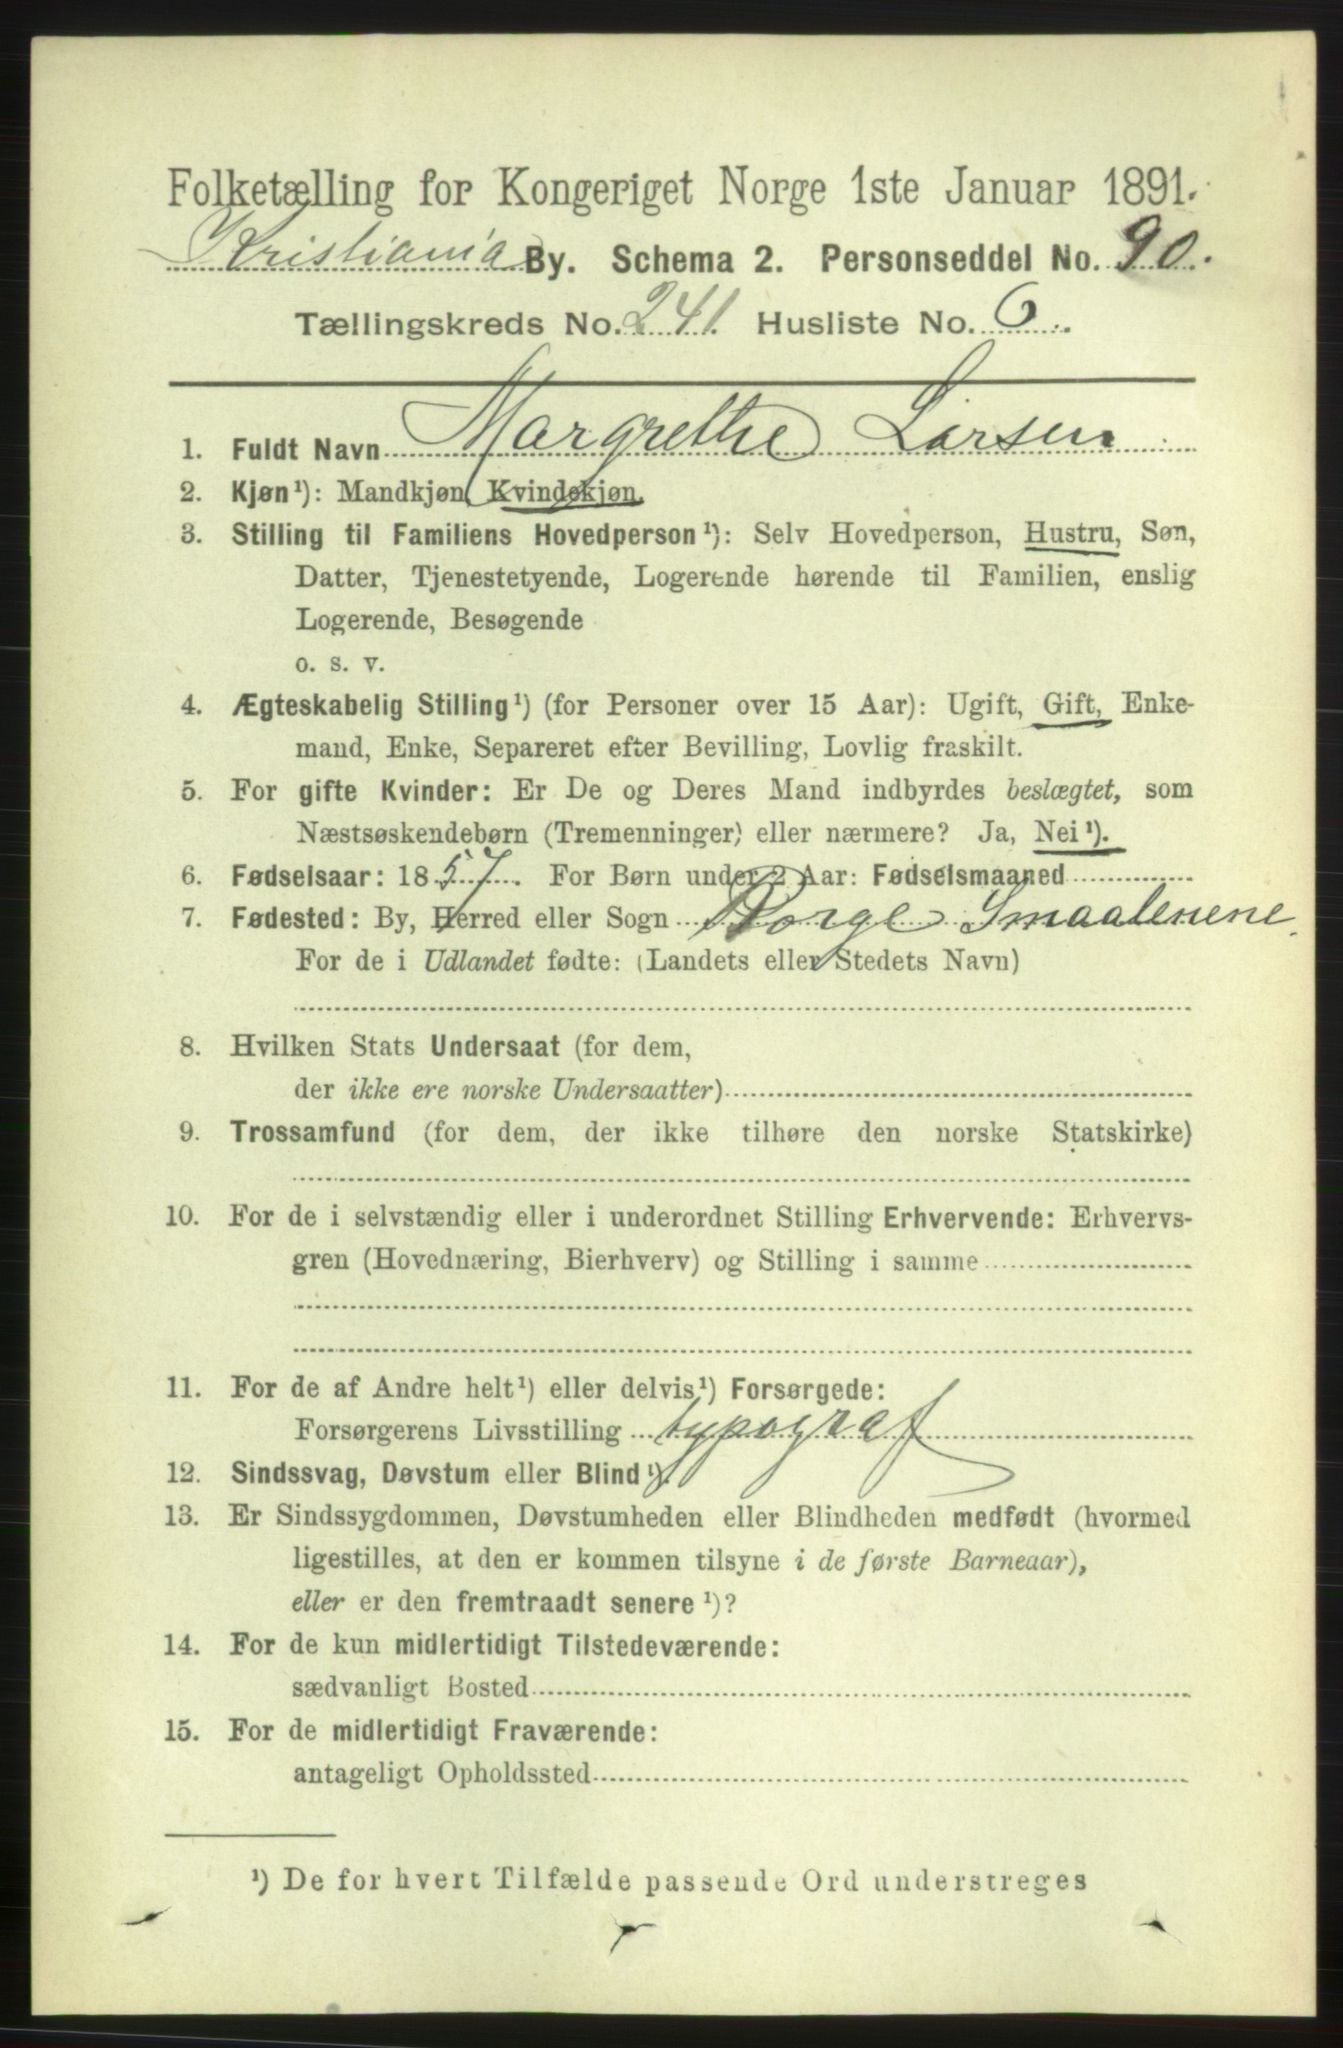 Folketælling for Kongeriget Norge 1ste Januar 1891.
Kristiania By. Schema 2. Personseddel No. 90.
Tællingskreds No. 241 Husliste No. 6.
1. Fuldt Navn Margrethe Larsen
2. Kjøn¹): Mandkjøn, Kvindekjøn.
3. Stilling til Familiens Hovedperson¹): Selv Hovedperson, Hustru, Søn,
Datter, Tjenestetyende, Logerende hørende til Familien, enslig
Logerende, Besøgende
o. s. v.
4. Ægteskabelig Stilling¹) (for Personer over 15 Aar): Ugift, Gift, Enke-
mand, Enke, Separeret efter Bevilling, Lovlig fraskilt.
5. For gifte Kvinder: Er De og Deres Mand indbyrdes beslægtet, som
Næstsøskendebørn (Tremenninger) eller nærmere? Ja, Nei¹).
6. Fødselsaar: 1857. For Børn under 2 Aar: Fødselsmaaned
7. Fødested: By, Herred eller Sogn Borge Smaalenene
For de i Udlandet fødte: (Landets eller Stedets Navn)
8. Hvilken Stats Undersaat (for dem,
der ikke ere norske Undersaatter)
9. Trossamfund (for dem, der ikke tilhøre den norske Statskirke)
10. For de i selvstændig eller i underordnet Stilling Erhvervende: Erhvervs-
gren (Hovednæring, Bierhverv) og Stilling i samme
11. For de af Andre helt¹) eller delvis¹) Forsørgede:
Forsørgerens Livsstilling typograf
12. Sindssvag, Døvstum eller Blind¹).
13. Er Sindssygdommen, Døvstumheden eller Blindheden medfødt (hvormed
ligestilles, at den er kommen tilsyne i de første Barneaar),
eller er den fremtraadt senere¹)?
14. For de kun midlertidigt Tilstedeværende:
sædvanligt Bosted
15. For de midlertidigt Fraværende:
antageligt Opholdssted
¹) De for hvert Tilfælde passende Ord understreges